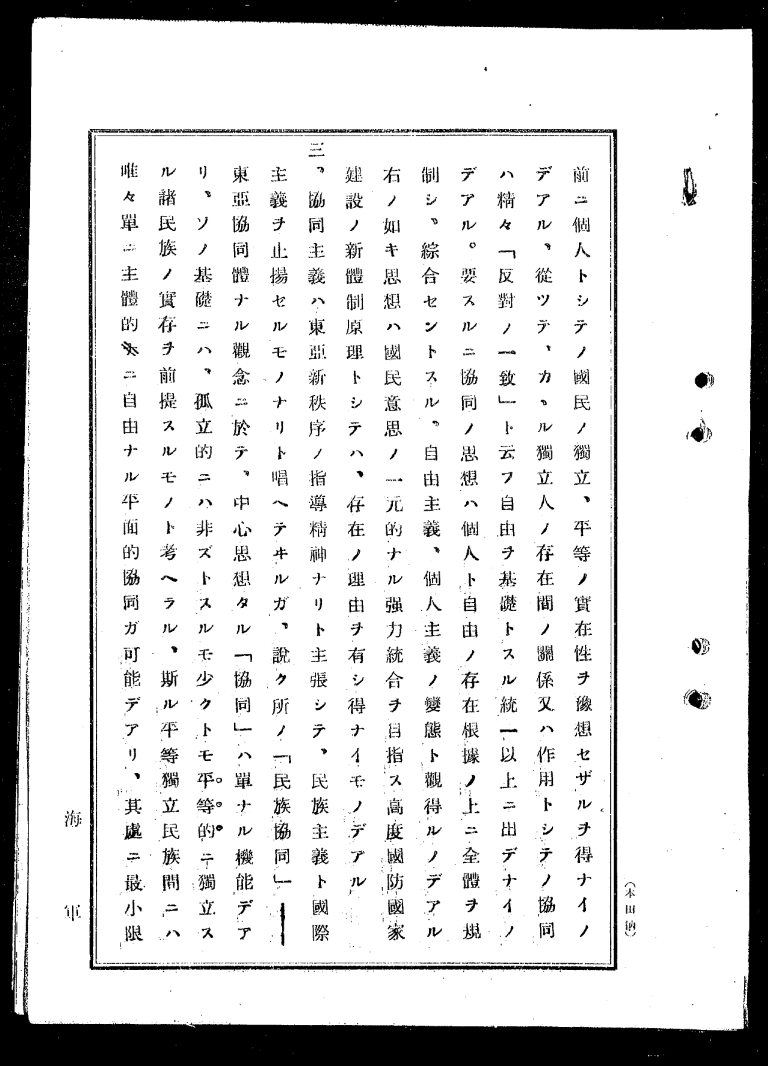 前ニ個人トシテノ國民ノ獨立、平等ノ實在性ヲ豫想セザルヲ得ナイノ
デアル、從ツテ、カヽル獨立人ノ存在間ノ關係又ハ作用トシテノ協同
ハ精々「反對ノ一致」ト云フ自由ヲ基礎トスル統一以上ニ出デナイノ
デアル。要スルニ協同ノ思想ハ個人ト自由ノ存在根據ノ上ニ全體ヲ規
制シ、綜合セントスル。自由主義、個人主義ノ變態ト觀得ルノデアル
右ノ如キ思想ハ國民意思ノ一元的ナル强力統合ヲ目指ス高度國防國家
建設ノ新體制原理トシテハ、存在ノ理由ヲ有シ得ナイモノデアル
三、協同主義ハ東亞新秩序ノ指導精神ナリト主張シテ、民族主義ト國際
主義ヲ止揚セルモノナリト唱ヘテヰルガ、說ク所ノ「民族協同」―
東亞協同體ナル觀念ニ於テ、中心思想タル「協同」ハ單ナル機能デア
リ、ソノ基礎ニハ、孤立的ニハ非ズトスルモ少クトモ平等的ニ獨立ス
ル諸民族ノ實存ヲ前提スルモノト考ヘラル、斯ル平等獨立民族間ニハ
唯々單ニ主體的ニ自由ナル平面的協同ガ可能デアリ、其處ニ最小限
海軍
(本田納)